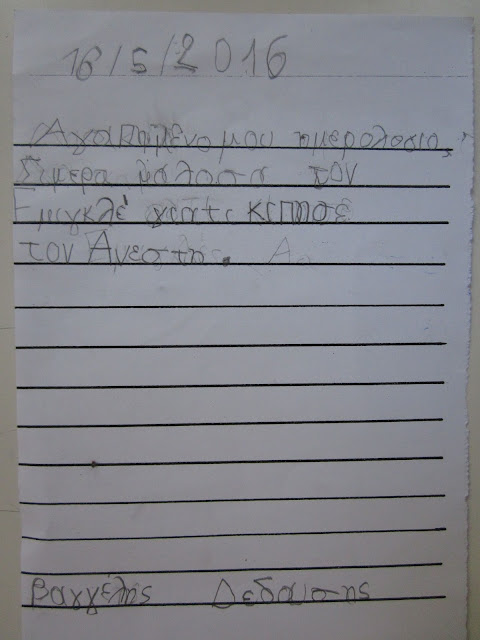 16/5/2016
Αγαπημένο μου ημερολοσιο,
Σιμερα μαλοσα τον
Εμιγκλέ γιατι κτπησε
τον Ανεστη. Αα
Βαγγέλης Δεδαυσης